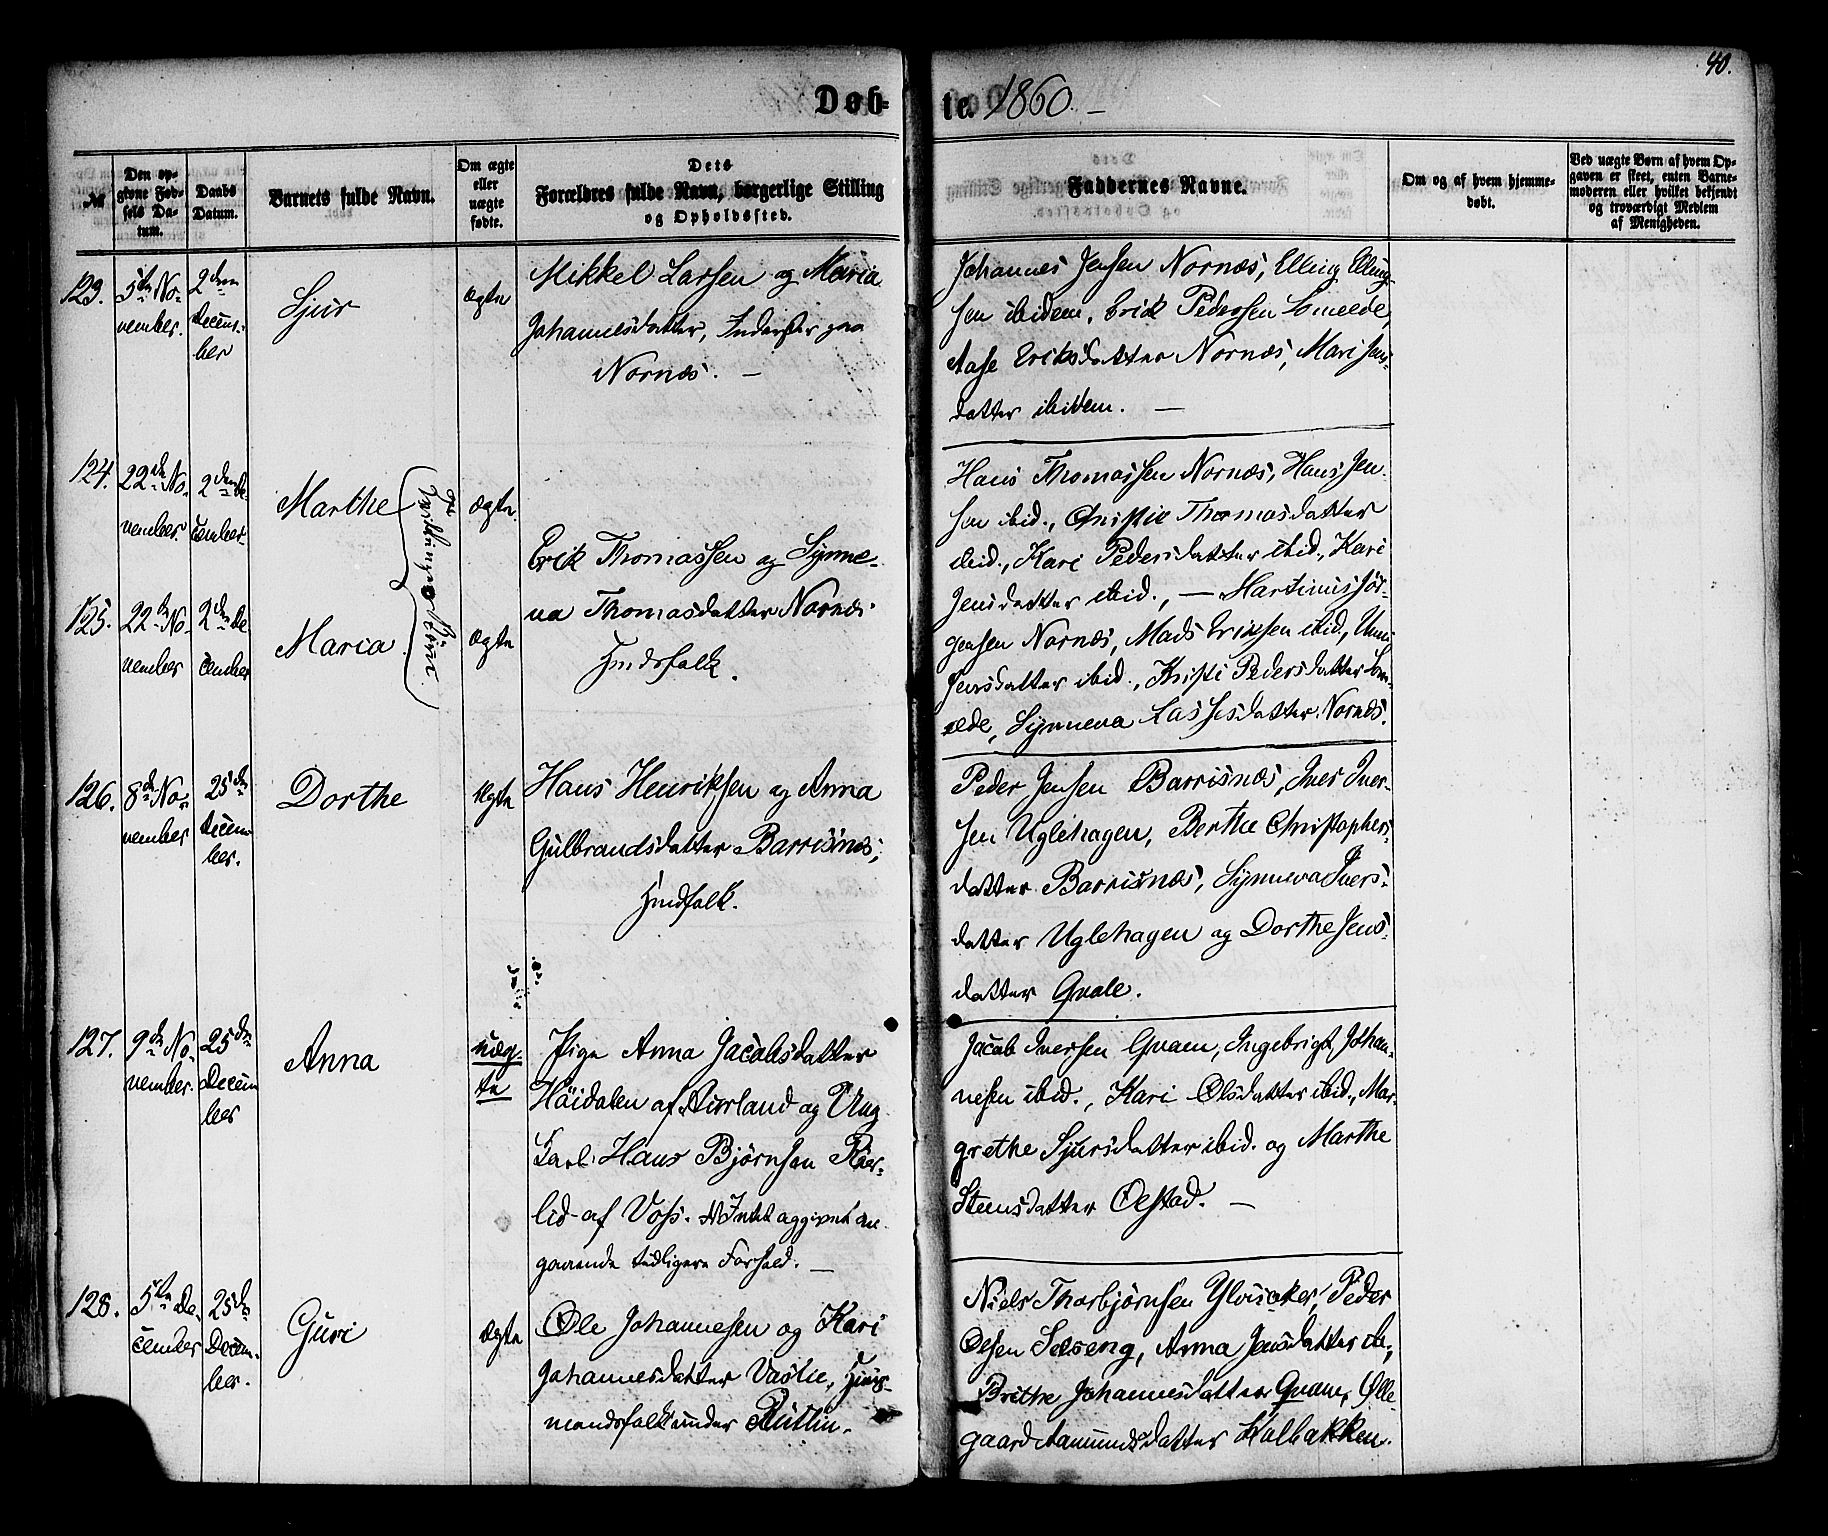 40.
Døb-
te. 1860. —
№
Den op-
givne Fød-
sels Da-
tum.
Daabs
Datum.
Barnets fulde Navn.
Om ægte
eller
uægte
fødte.
Dets
Forældres fulde Navn, borgerlige Stilling
og Opholdssted.
Faddernes Navne.
Om og af hvem hjemme-
døbt.
Ved uægte Børn af hvem Op-
gaven er skeet, enten Barne-
moderen eller hvilket bekjendt
og troværdigt Medlem
af Menigheden.
123.
5te No-
vember.
2den
Decem-
ber
Sjur
Ægte
Mikkel Larsen og Maria
Johannesdatter, Inderster paa
Nornæs. —
Johannes Jensen Nornæs, Elling Elling-
sen ibidem, Erik Pedersen
Aase Eriksdatter Nornæs, Mari Jens-
datter ibidem. —
124.
22de No-
vember.
2den De-
cember.
Marthe
Ægte.
125.
22de No-
vember
2den De-
cember
Maria
Ægte
Erik Thomassen og Synne-
va Thomasdatter Nornæs.
Hans Thomassen Nornæs, Hans Jen-
sen ibid., Christie Thomasdatter
ibid., Kari Pedersdatter ibid., Kari
Jensdatter ibid., — Martinus Jør-
gensen Nornæs, Mads Eriksen ibid., Unni
Jensdatter ibid., Kristi Pedersdatter
Synneva Lassesdatter Nornæs.
126.
8de No-
vember
25de
Decem-
ber.
Dorthe
Ægte
Hans Henriksen og Anna
Gulbrandsdatter Barrisnæs,
Peder Jensen Barrisnæs, Iver Iver-
sen Uglehagen, Berthe Christophers-
datter Barrisnæs, Synneva Ivers-
datter Uglehagen og Dorthe Jens-
datter Qvale.
127.
9de No-
vember.
25de
Decem-
ber
Anna
uæg-
te
Pige Anna Jacobsdatter
Høidalen af Aurland og Ung-
karl Hans Bjørnsen
af Voss. Intet opgivet an-
gaaende tidligere Forhold. —
Jacob Iversen Qvam, Ingebrigt Johan-
nesen ibid., Kari Olsdatter ibid., Mar-
grethe Sjursdatter ibid. og Marthe
Steensdatter Øestad. —
128.
5te De-
cember
25de
Decem-
ber.
Guri
Ægte
Ole Johannesen og Kari
Johannesdatter Vaslie, Huus-
mandsfolk under Rutlin.
Niels Thorbjørnsen Ylvisaker, Peder
Olsen Selseng, Anna Jensdatter ib.,
Brithe Johannesdatter Qvam, Olle-
gaard Aamundsdatter Kalbakken.